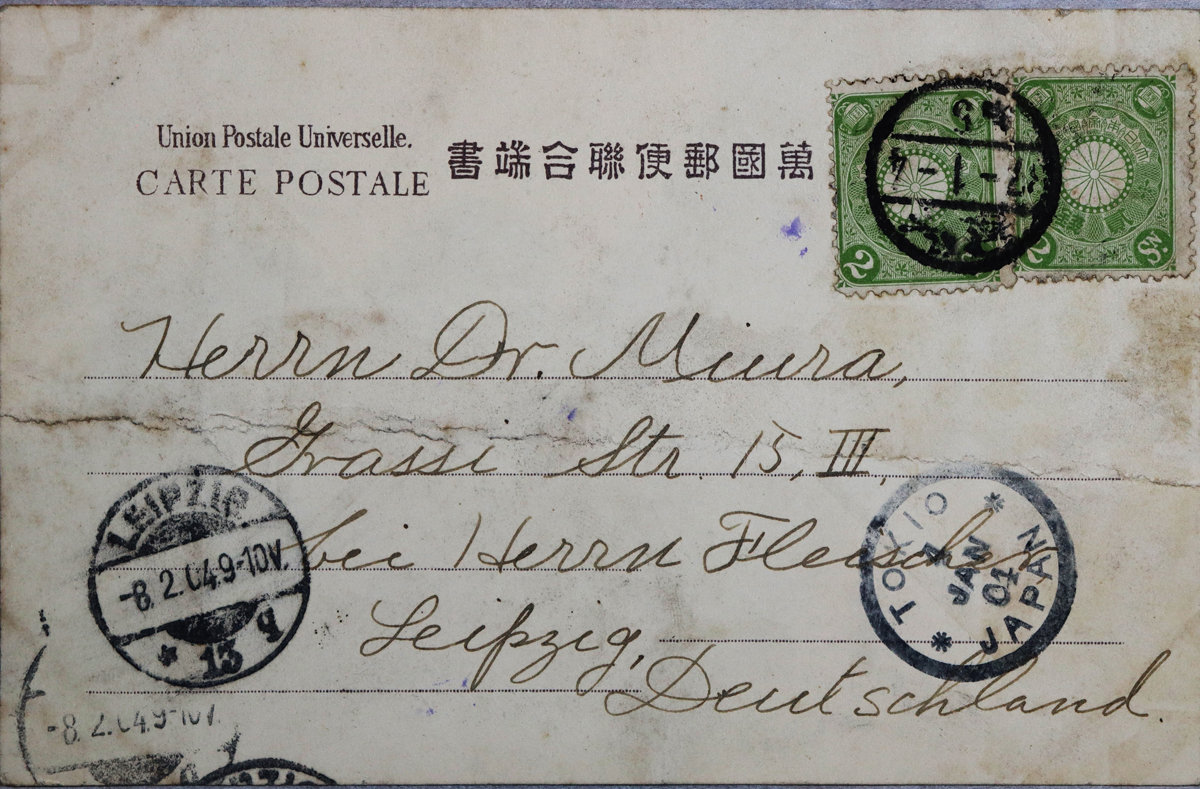 Union Postale Universelle.
CARTE POSTALE
萬國郵便聯合端書
2
2 Sn.
Herrn Dr. Miura,
Grassi Str. 15, III,
bei Herrn Fleischer
Leipzig,
Deutschland.
LEIPZIG
-8.2.04.9-10V.
* 13 q
TOKIO
4
JAN
04
JAPAN
-8.2.04.9-10V.